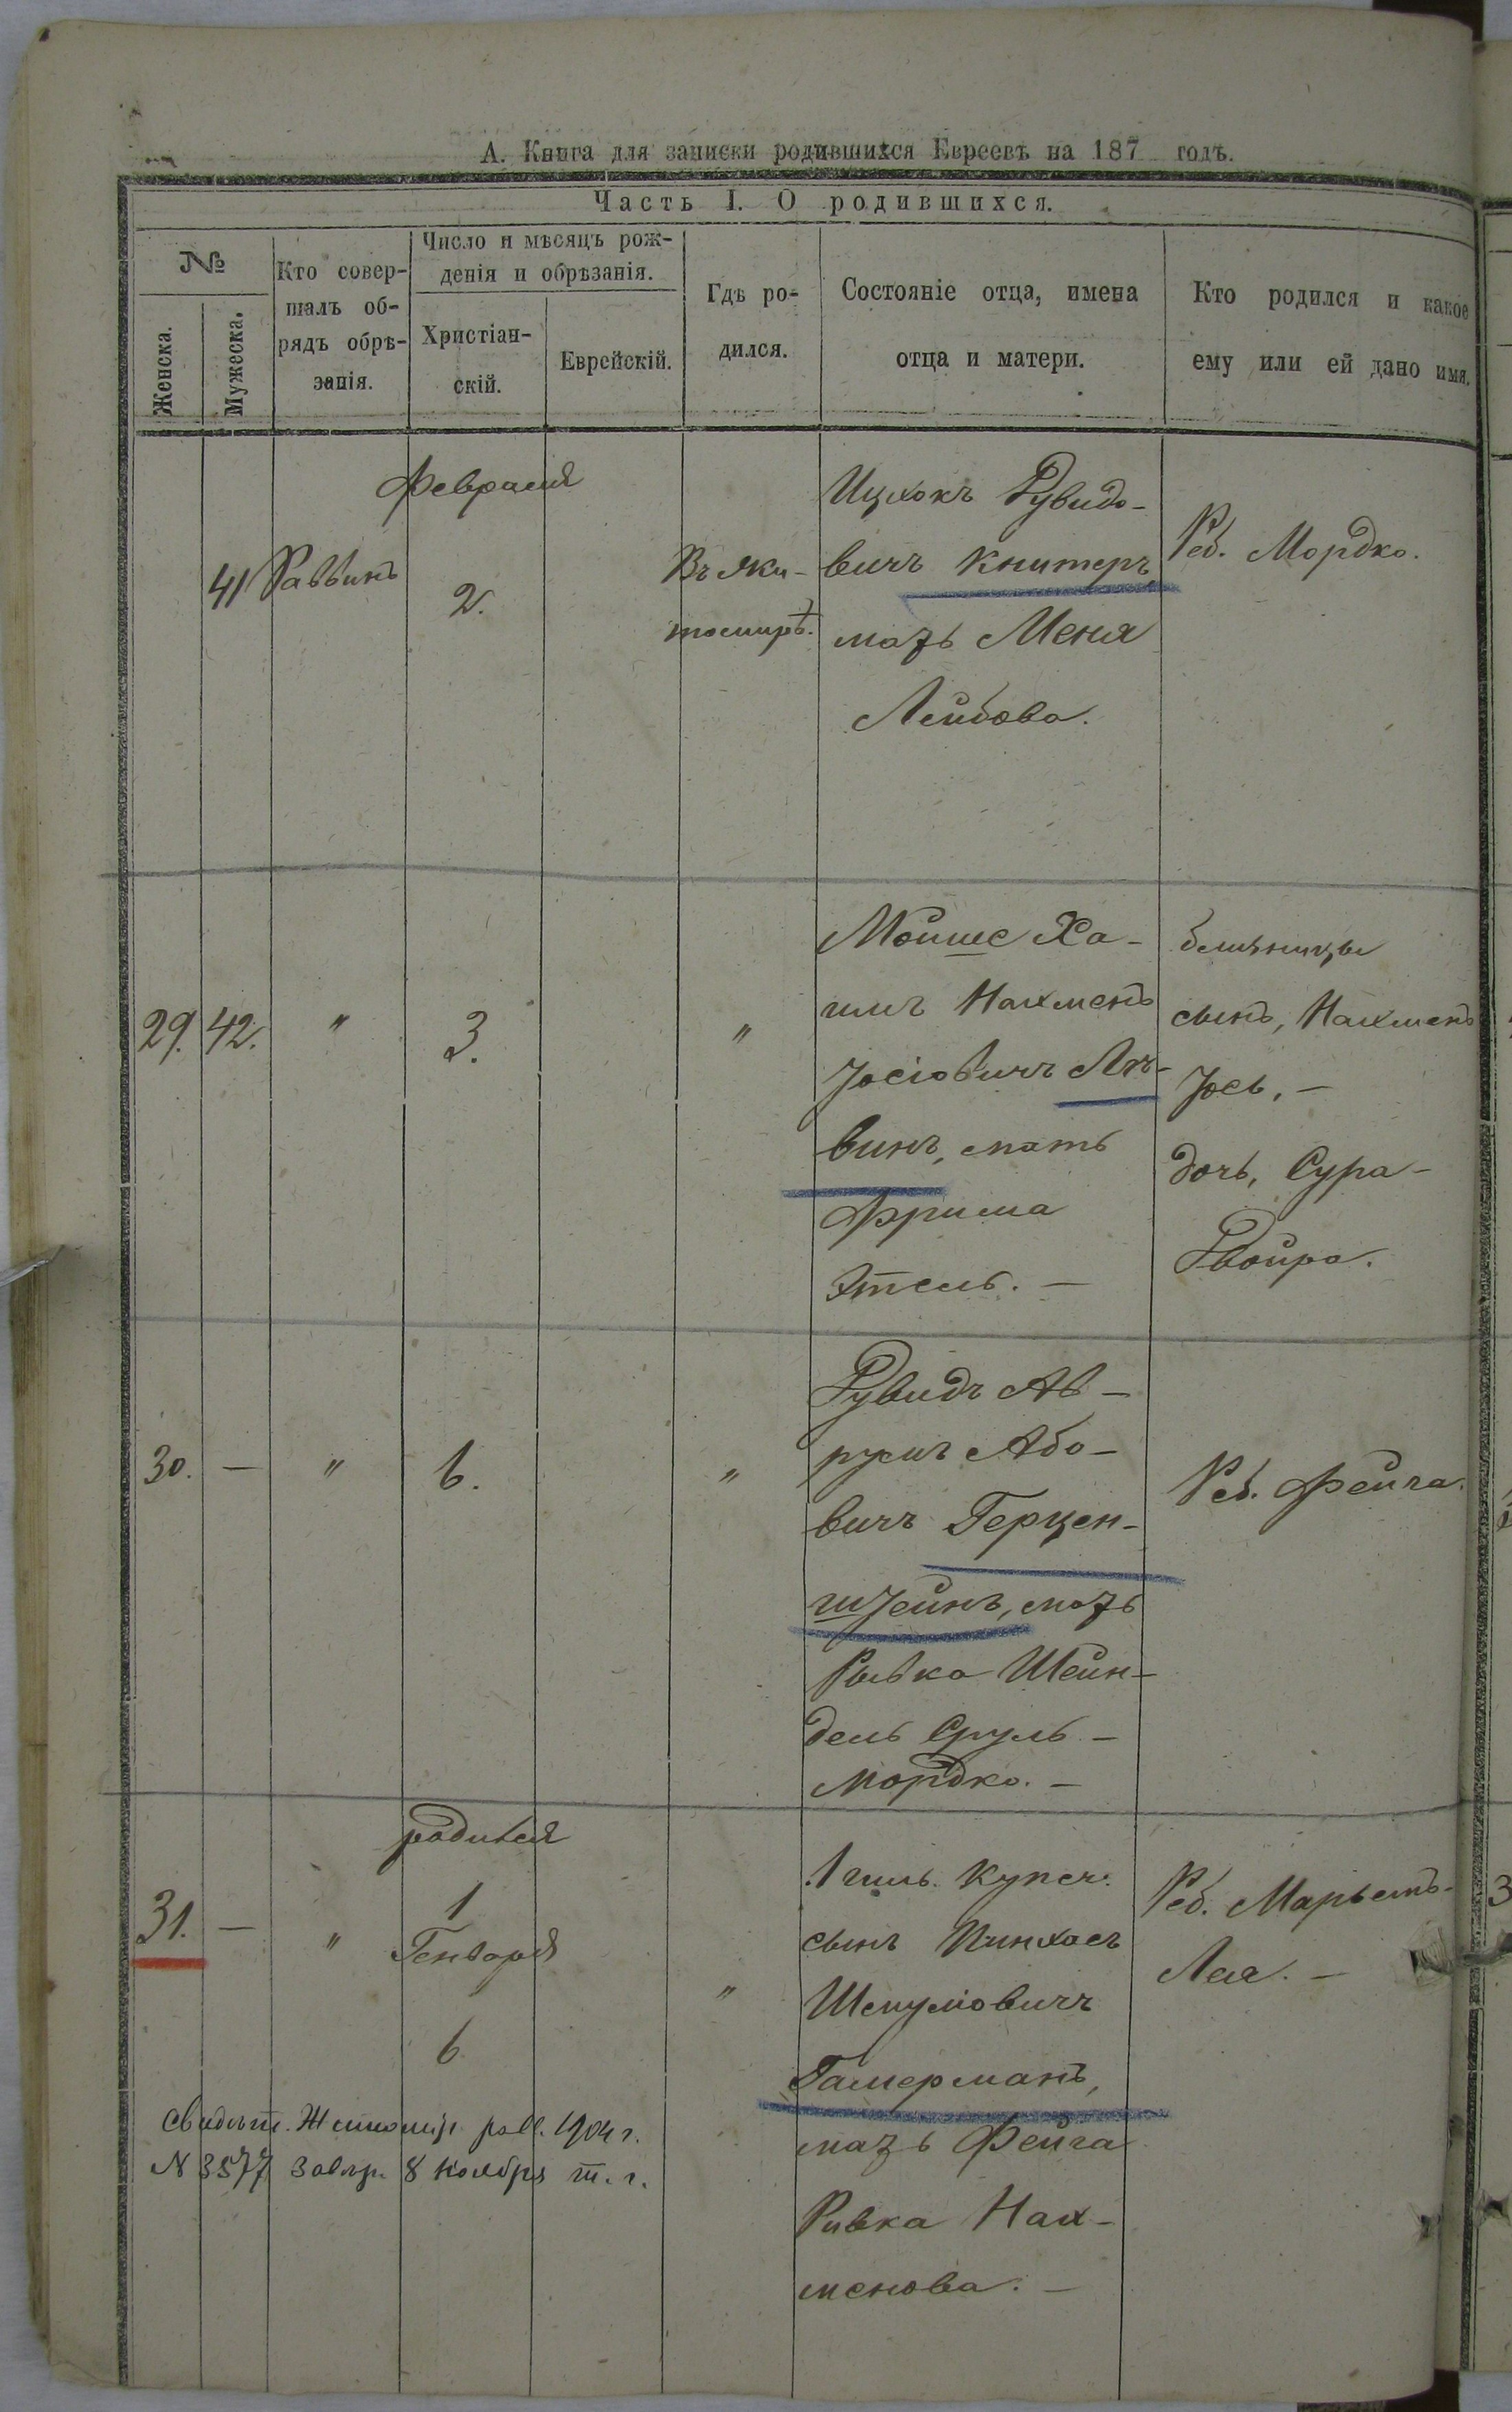 А. Книга для записки родившихся Евреевъ на 187 годъ.
Часть I. О родившихся.
№
Женска.
Мужеска.
Кто совер-
шалъ об-
рядъ обрѣ-
занія.
Число и мѣсяцъ рож-
денія и обрѣзанія.
Христіан-
скій.
Еврейскій.
Гдѣ ро-
дился.
Состояніе отца, имена
отца и матери.
Кто родился и какое
ему или ей дано имя.
41
Раввинъ
Февраля
2.
Въ Жи-
томирѣ.
Ицхокъ Рувидо-
вичъ Книтеръ
мать Меня
Лейбова.
Реб. Мордко.
29.
42.
"
3.
"
Мойше Ха-
имъ Нахменъ
Іосіовичъ Ле-
винъ, мать
Фрима
Этель. —
близницы
сынъ, Нахменъ
Іось, —
дочь, Сура-
Двойра.
30.
—
"
6.
"
Рувидъ Ав-
румъ Або-
вичъ Герцен-
штейнъ, мать
Ривка Шейн-
дель Сруль-
Мордко. —
Реб. Фейга.
31.
—
"
родился
1
Генваря
6
"
1 гил. Купеч.
сынъ Пинхасъ
Шмуліовичъ
Гамерманъ,
мать Фейга
Ривка Нах-
менова. —
Реб. Марьемъ-
Лея. —
Свидѣт. Житомір. равв. 1904 г.
N 3577 завѣр. 8 Ноября т. г.